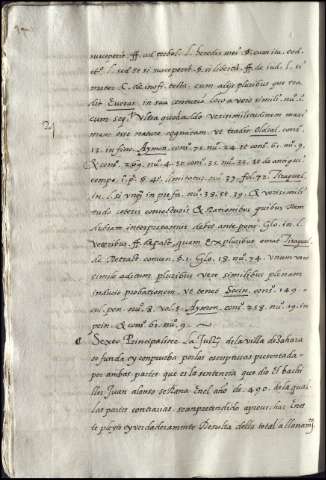 susceperit. ff. ad trebel. l. heredes mei §. cum ita. cod.
si susceperit. §. si libertus. ff. de iud. l. si
C. de inoff. testa. cum alijs pluribus que tra
dit Everar. in sua centuria loco a vere simili. nu.
cum seq. Ultra quod addo verisimilitudinem maxi
mam esse nature cognatam. ut tradit Oldral. cons.
13. in fine. Aymon. cons. 75. nu. 24. et cons. 61. nu. 9.
& cons. 289. nu. 4. et cons. 31. nu. 22. et de antiqui.
tempo. 1. p. §. 4. limitatur. nu. 37. fol. 72. Tiraquel.
in. l. si unq. in prefa. nu. 38. et. 39. & verisimili
tudo ceteris coniecturis & rationibus quibus rem
dubiam interpretamur debet ante poni Glo. in. l.
veteribus. ff. de pact. quem ex pluribus ornat Tiraquel.
de Retract. conven. §. 1. Glo. 18. nu. 74. unum vero
simile adiutum pluribus vere similibus plenam
inducit probationem. ut tenet Socin. cons. 149.
pen. nu. 8. vol. 3. Aymon. cons. 258. nu. 19. in
prin. & cons. 61. nu. 9.
Sexto Principaliter La Justa. de la villa de Sahara
se funda y comprueba por las escripturas presentadas
por ambas partes que es la sentencia que dio El bachi
ller Juan alonso serrano En el año de. 490. de la qual
las partes contrarias se an pretendido aprovechar En es
te pleyto y verdaderamente Resulta della total allanamto